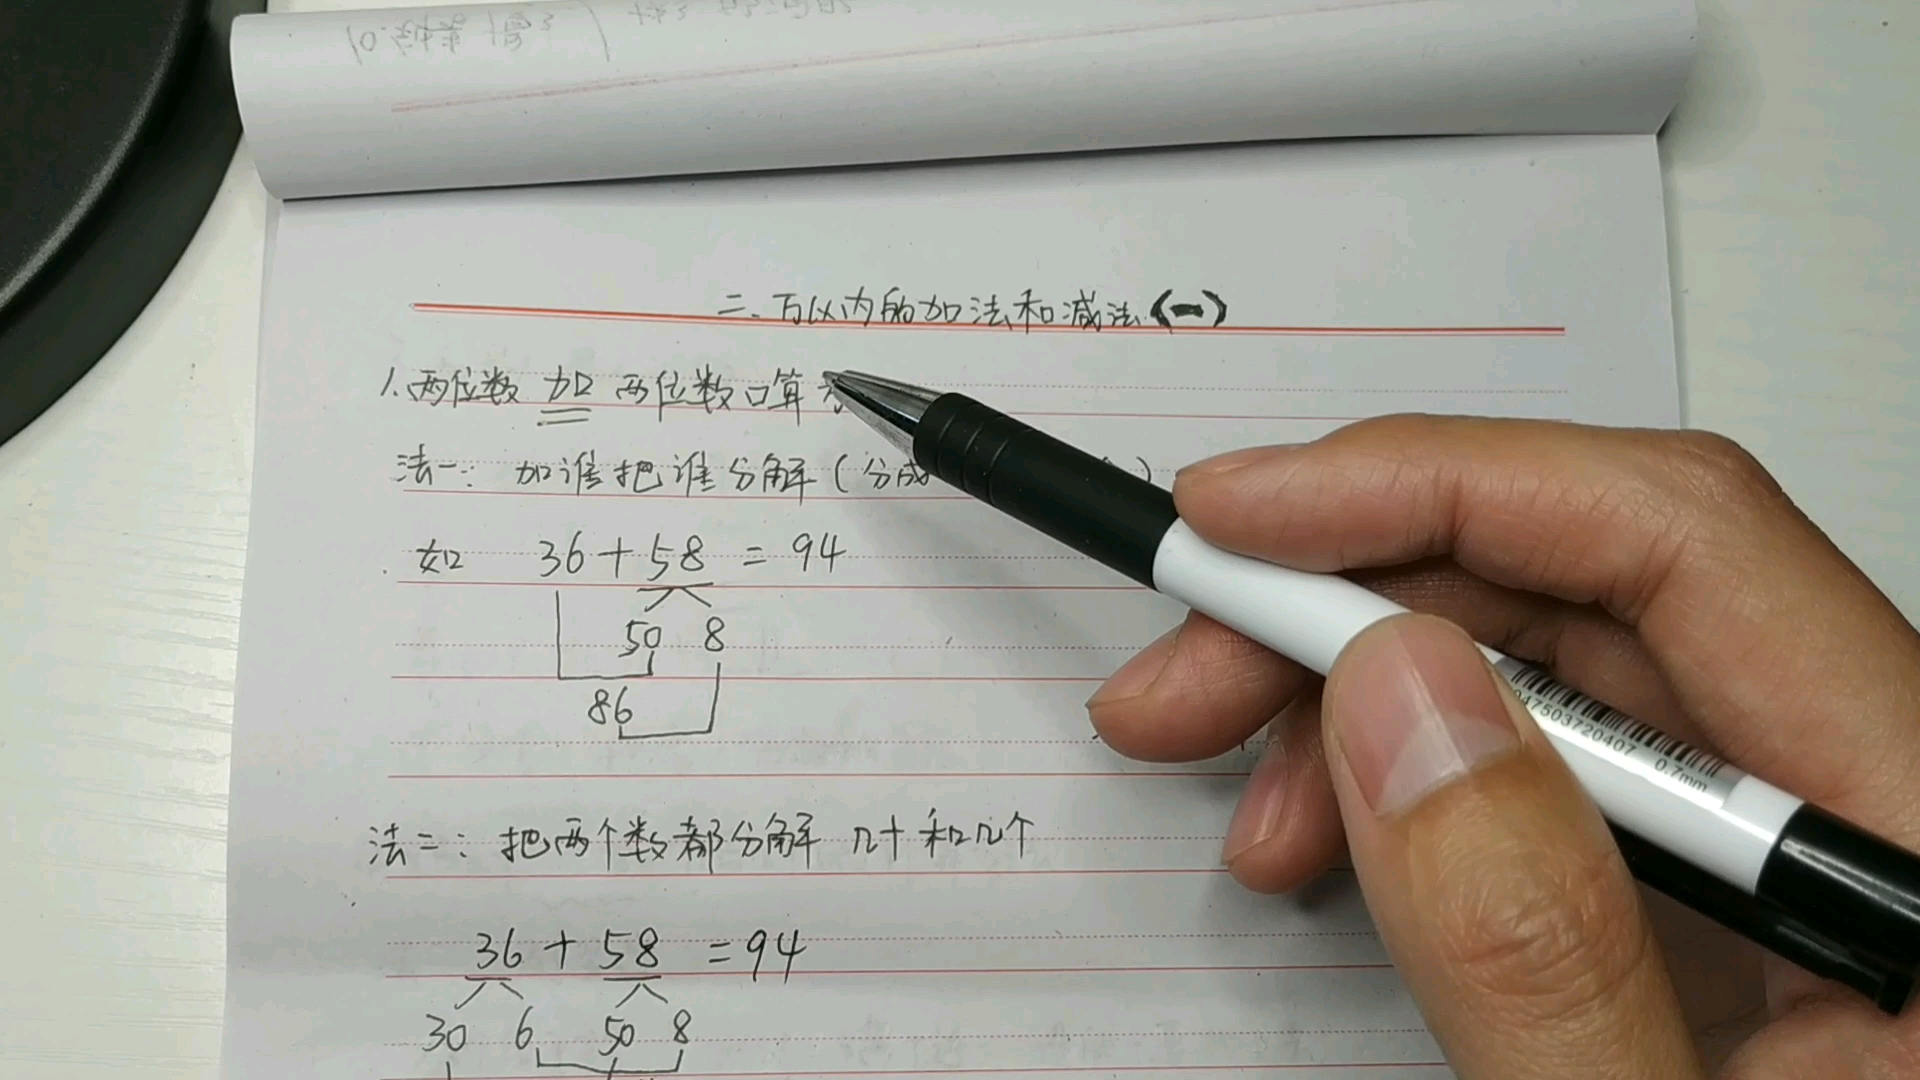 二、万以内的加法和减法(一)
1.两位数 加 两位数口算
法一: 加谁把谁分解(分成
如 36+58 = 94
50 8
86
法二: 把两个数都分解 几十和几个
36+58 =94
30 6 50 8
947503720407
0.7mm